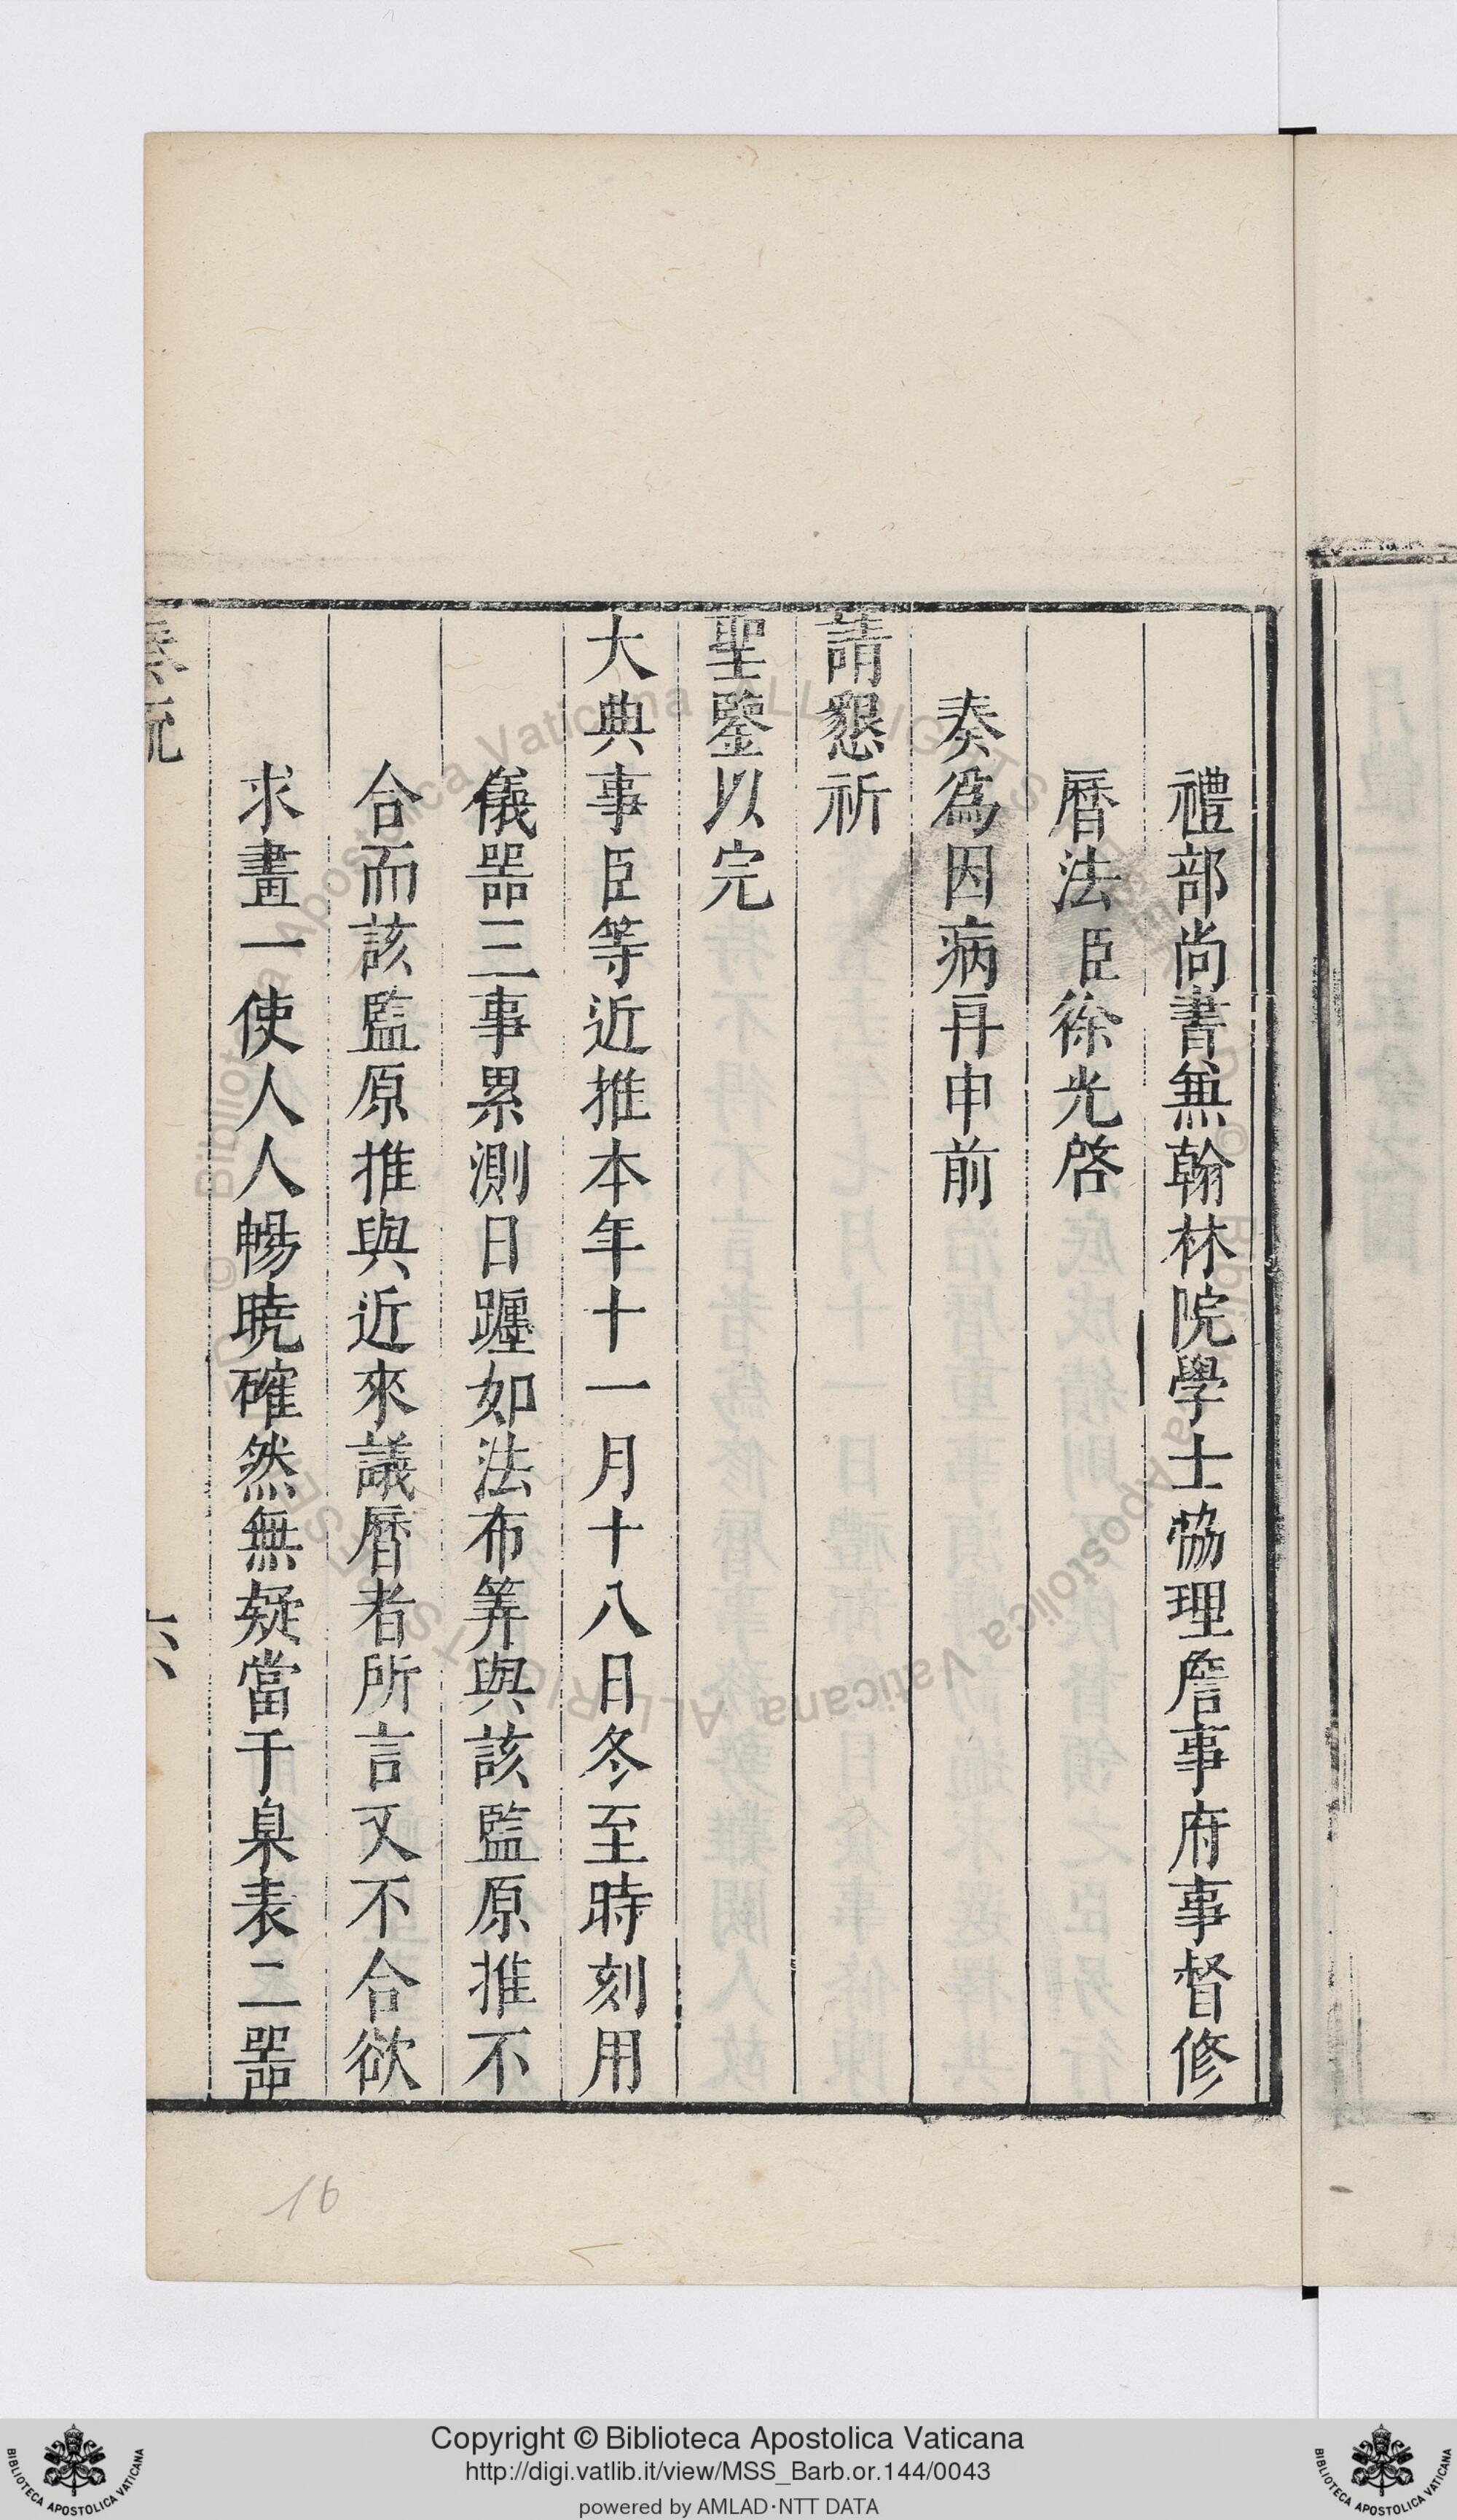 禮部尚書兼翰林院學士協理詹事府事督修
曆法臣徐光啓
奏爲因病再申前
請懇祈
聖鑒以完
大典事臣等近推本年十一月十八日冬至時刻用
儀器三事累測日躔如法布筭與該監原推不
合而該監原推與近來議曆者所言又不合欲
求畫一使人人暢曉確然無疑當于臬表二器
六
16
Copyright © Biblioteca Apostolica Vaticana
http://digi.vatlib.it/view/MSS_Barb.or.144/0043
powered by AMLAD·NTT DATA
BIBLIOTECA APOSTOLICA VATICANA
BIBLIOTECA APOSTOLICA VATICANA